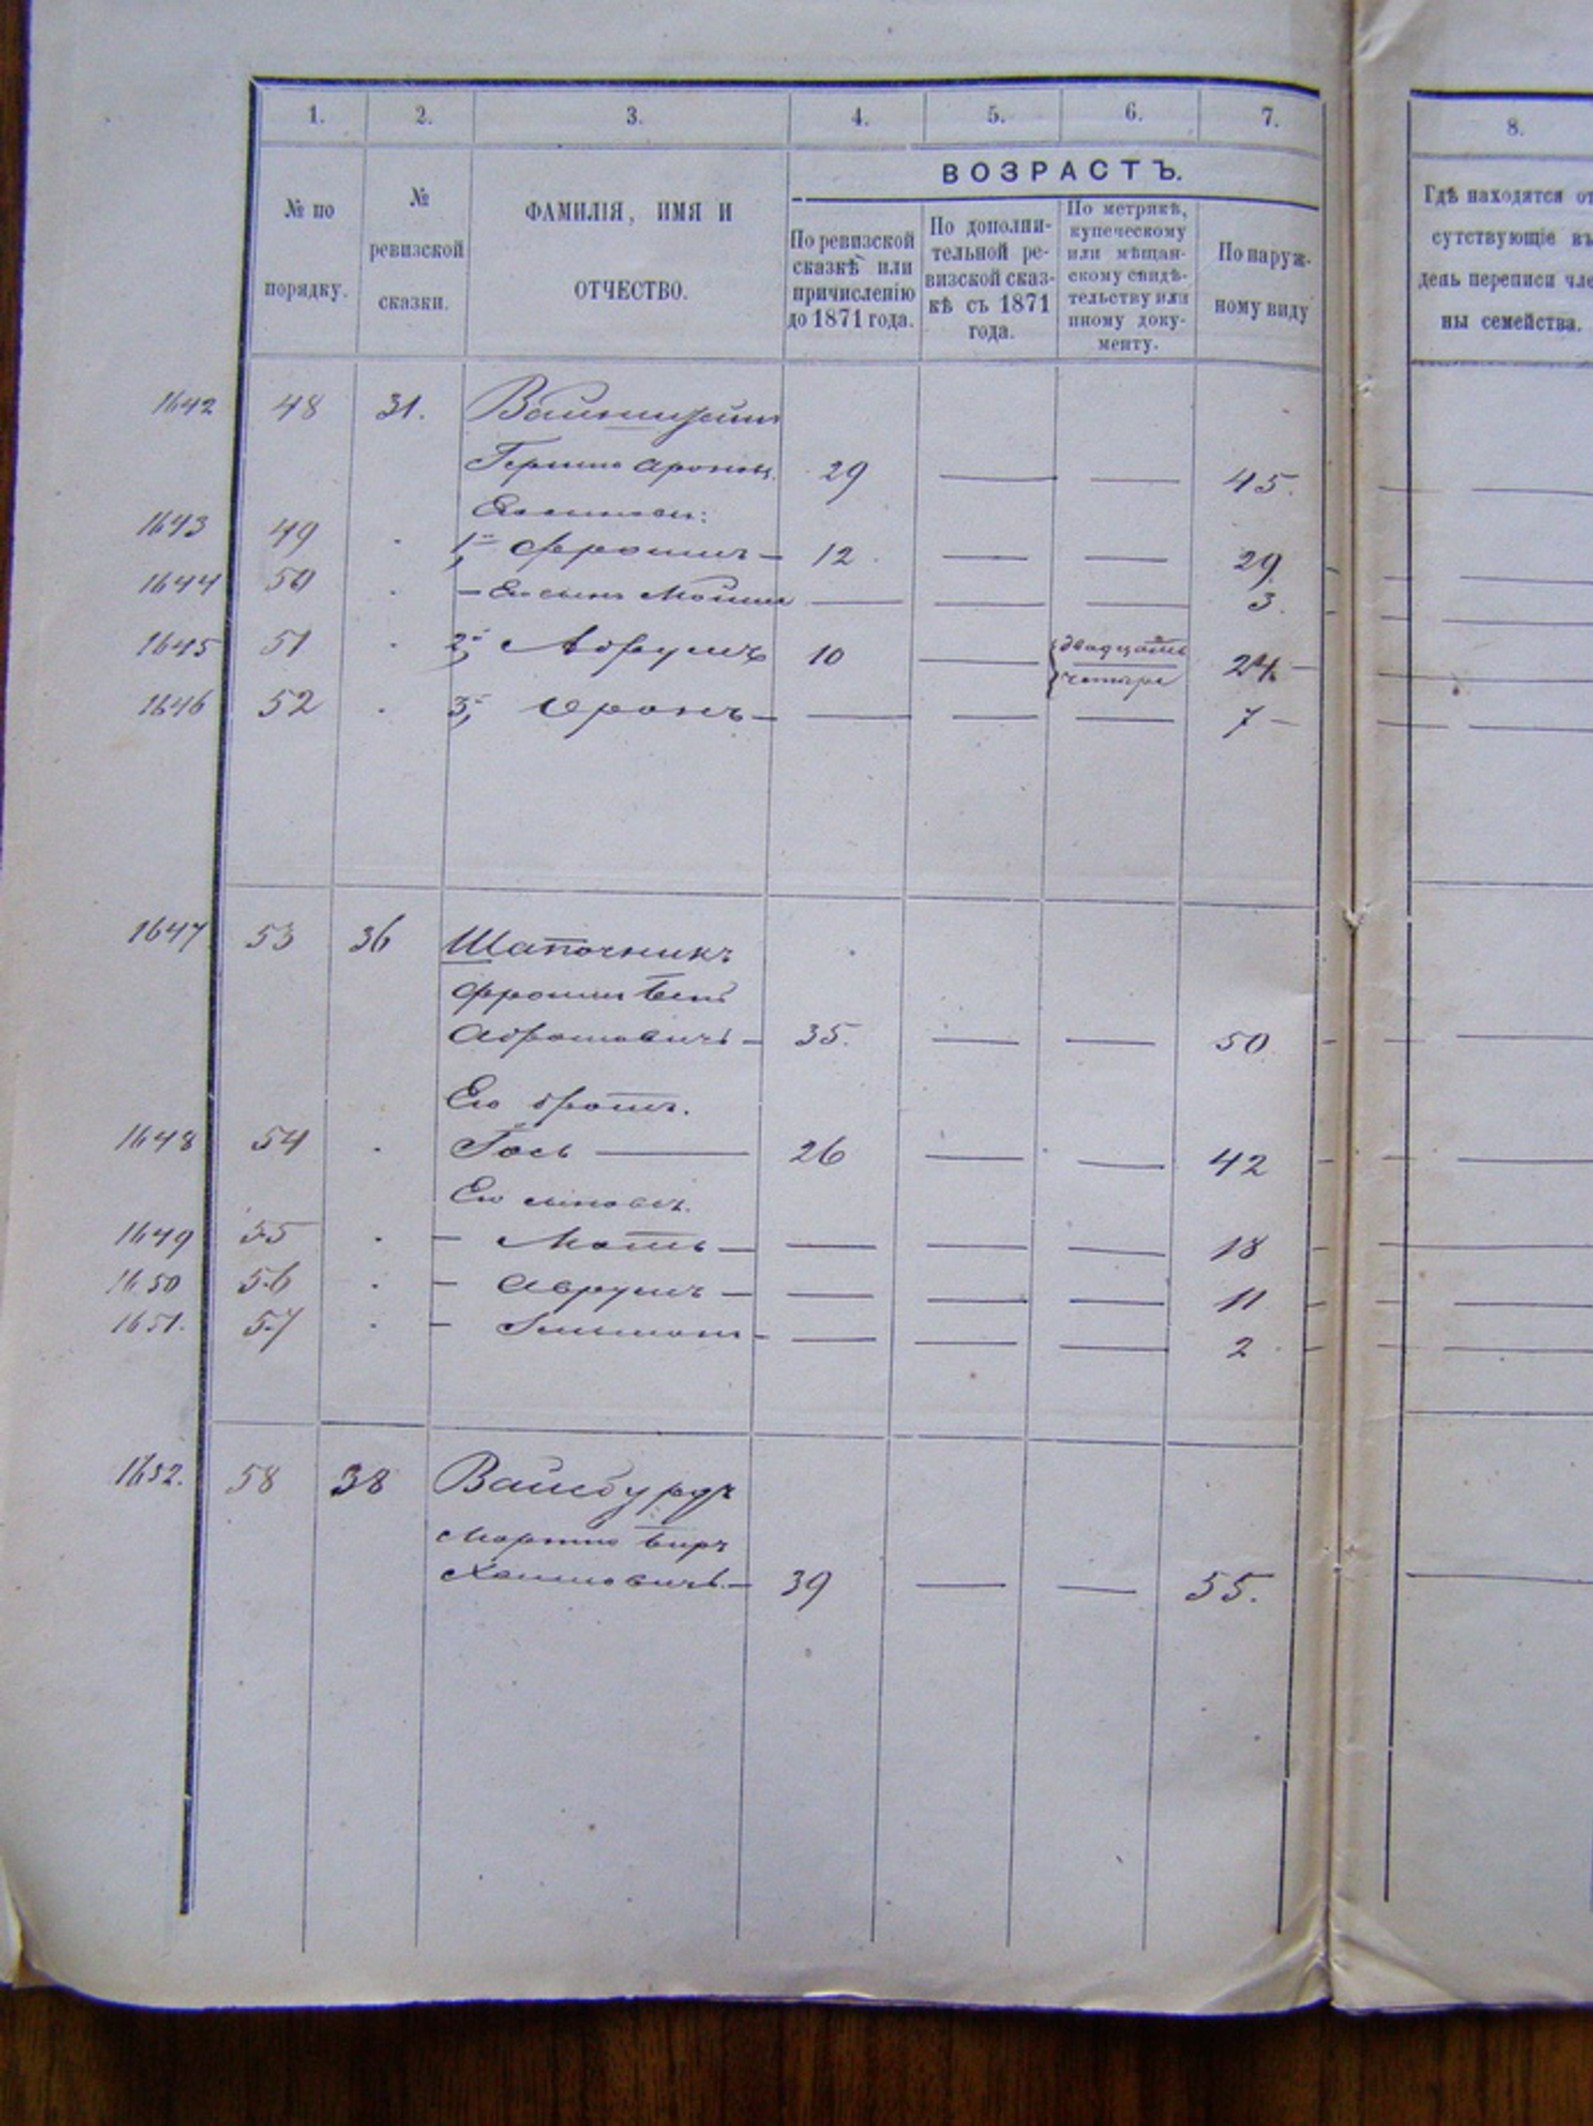 1. 2. 3. 4. 5. 6. 7. 8.
№ по порядку.
№ ревизской сказки.
ФАМИЛІЯ, ИМЯ И
ОТЧЕСТВО.
ВОЗРАСТЪ.
По ревизской
сказкѣ или
причисленію
до 1871 года.
По дополни-
тельной ре-
визской сказ-
кѣ съ 1871
года.
По метрикѣ,
купеческому
или мѣщан-
скому свидѣ-
тельству или
иному доку-
менту.
По наруж-
ному виду
Гдѣ находятся от
сутствующіе въ
день переписи чле
ны семейства.
1642 48 31.
Аронов. 29 — — 45.
Его сыновья:
1643 49 1й Фроимъ — 12 — — 29
1644 50 — Его сынъ Мойше — — — 3.
1645 51 2й Абрумъ 10 — двадцать четыре 24 —
1646 52 3й Оронъ — — — — 7 —
1647 53 36 Шапочникъ
Фроим
Абрамовичъ — 35. — — 50
Его братъ.
1648 54 Гось — 26 — — 42
Его сыновья.
1649 55 — Моть — — — — 18
1650 56 — Аврумъ — — — — 11
1651. 57 — — — — — 2
1652. 58 38 Вайсбурдъ
Хаимовичъ. — 39 — — 55.